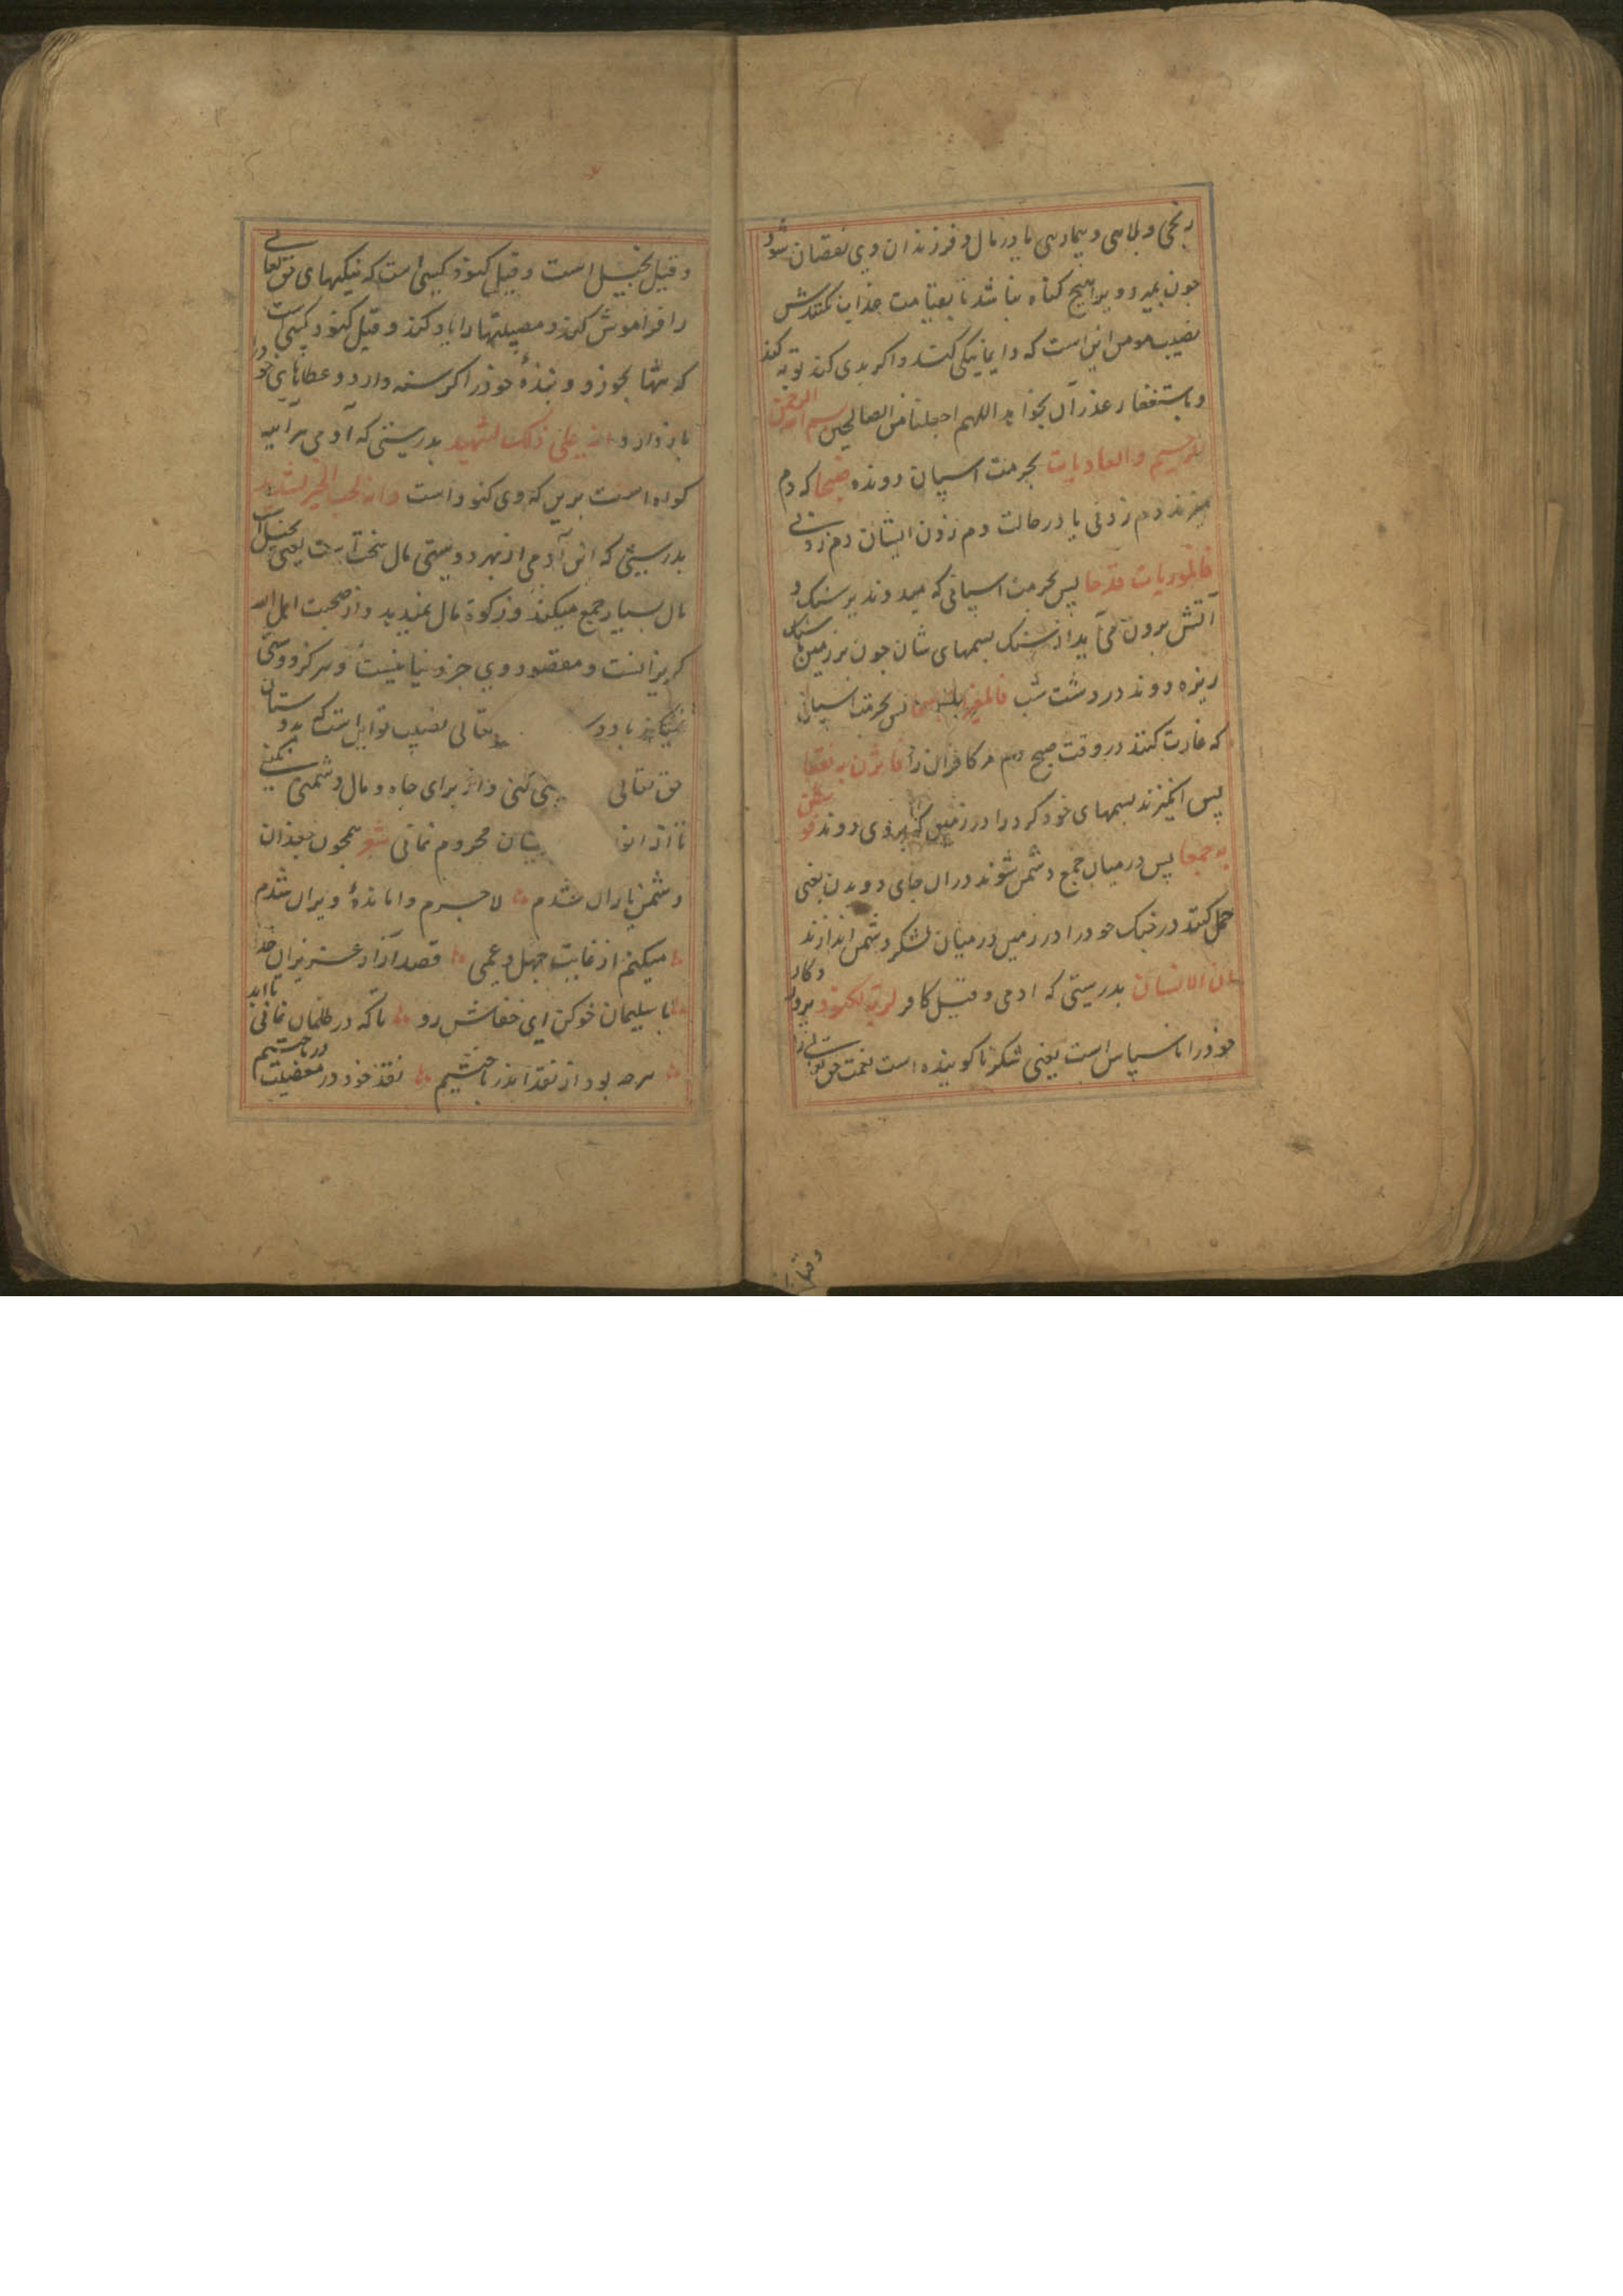 رنجی و بلاهی و بیمارهی یا در مال و فرزندان وی نقصان شود
چون بمیرد ویرا هیچ گناه نباشد تا بقیامت عذاب نکنندش
نصیب مومن این است که دایم نیکی کند و اگر بدی کند توبه کند
و باستغفار عذر آن بخواهد اللهم اجعلنا من الصالحین بسم الله الرحمن
الرحیم والعادیات بحرمت اسپان دونده ضبحا که دم
میزنند دم زدنی یا در حالت دم زدن ایشان دم زدنی
فالموریات قدحا پس بحرمت اسپانی که میدوند بر سنک و
آتش برون می آید از سنک بسمهای شان چون بر زمین سنک
ریزه دوند در دشت شب فالمغیرات صبحا پس بحرمت اسپانی
که غارت کنند در وقت صبح دم مر کافران را فاثرن به نقعا
پس انگیزند بسمهای خود کرد را در زمین که بروی دوند فوسطن
به جمعا پس در میان جمع دشمن شوند در ان جای دویدن یعنی
حمل کنند در جنک خود را در زمین در میان لشکر دشمن اندازند
ان الانسان بدرستی که ادمی و قیل کافر لربه لکنود پروردکار
خود را ناسپاس است یعنی شکر ناکوینده است نعمت حق تعالی را
و قیل
و قیل بخیل است و قیل کنود کسی است که نیکیهای حق تعالی
را فراموش کند و مصیبتها را یاد کند و قیل کنود کسی است
که تنها بخورد و بندهٔ خود را کرسنه دارد و عطاهای خود
باز دارد و انه علی ذلک لشهید بدرستی که آدمی هر آینه
کواه است برین که وی کنود است وانه لحب الخیر لشدید
بدرستی که این آدمی از بهر دوستی مال سخت است یعنی بخیل است
مال بسیار جمع میکند و زکوة مال نمیدهد و از صحبت اهل الله
کریزانست و مقصود وی جز دنیا نیست و هرکز دوستی
نمیکند با دوستان تعالی نصیب تو این است که بدوستان
حق تعالی کنی و از برای جاه و مال دشمنی نکنی
تا از انوا ایشان محروم نمانی شعر همچون جغدان
دشمن یاران شدم لاجرم واماندهٔ ویران شدم
میکنم از غایت جهل و عمی قصد آزار عزیزان خدا
با سلیمان خو کن ای خفاش رو تا که در ظلمان نمانی تا ابد
هر چه بود از نقد اندر باختیم نقد خود در معصیت در باختیم